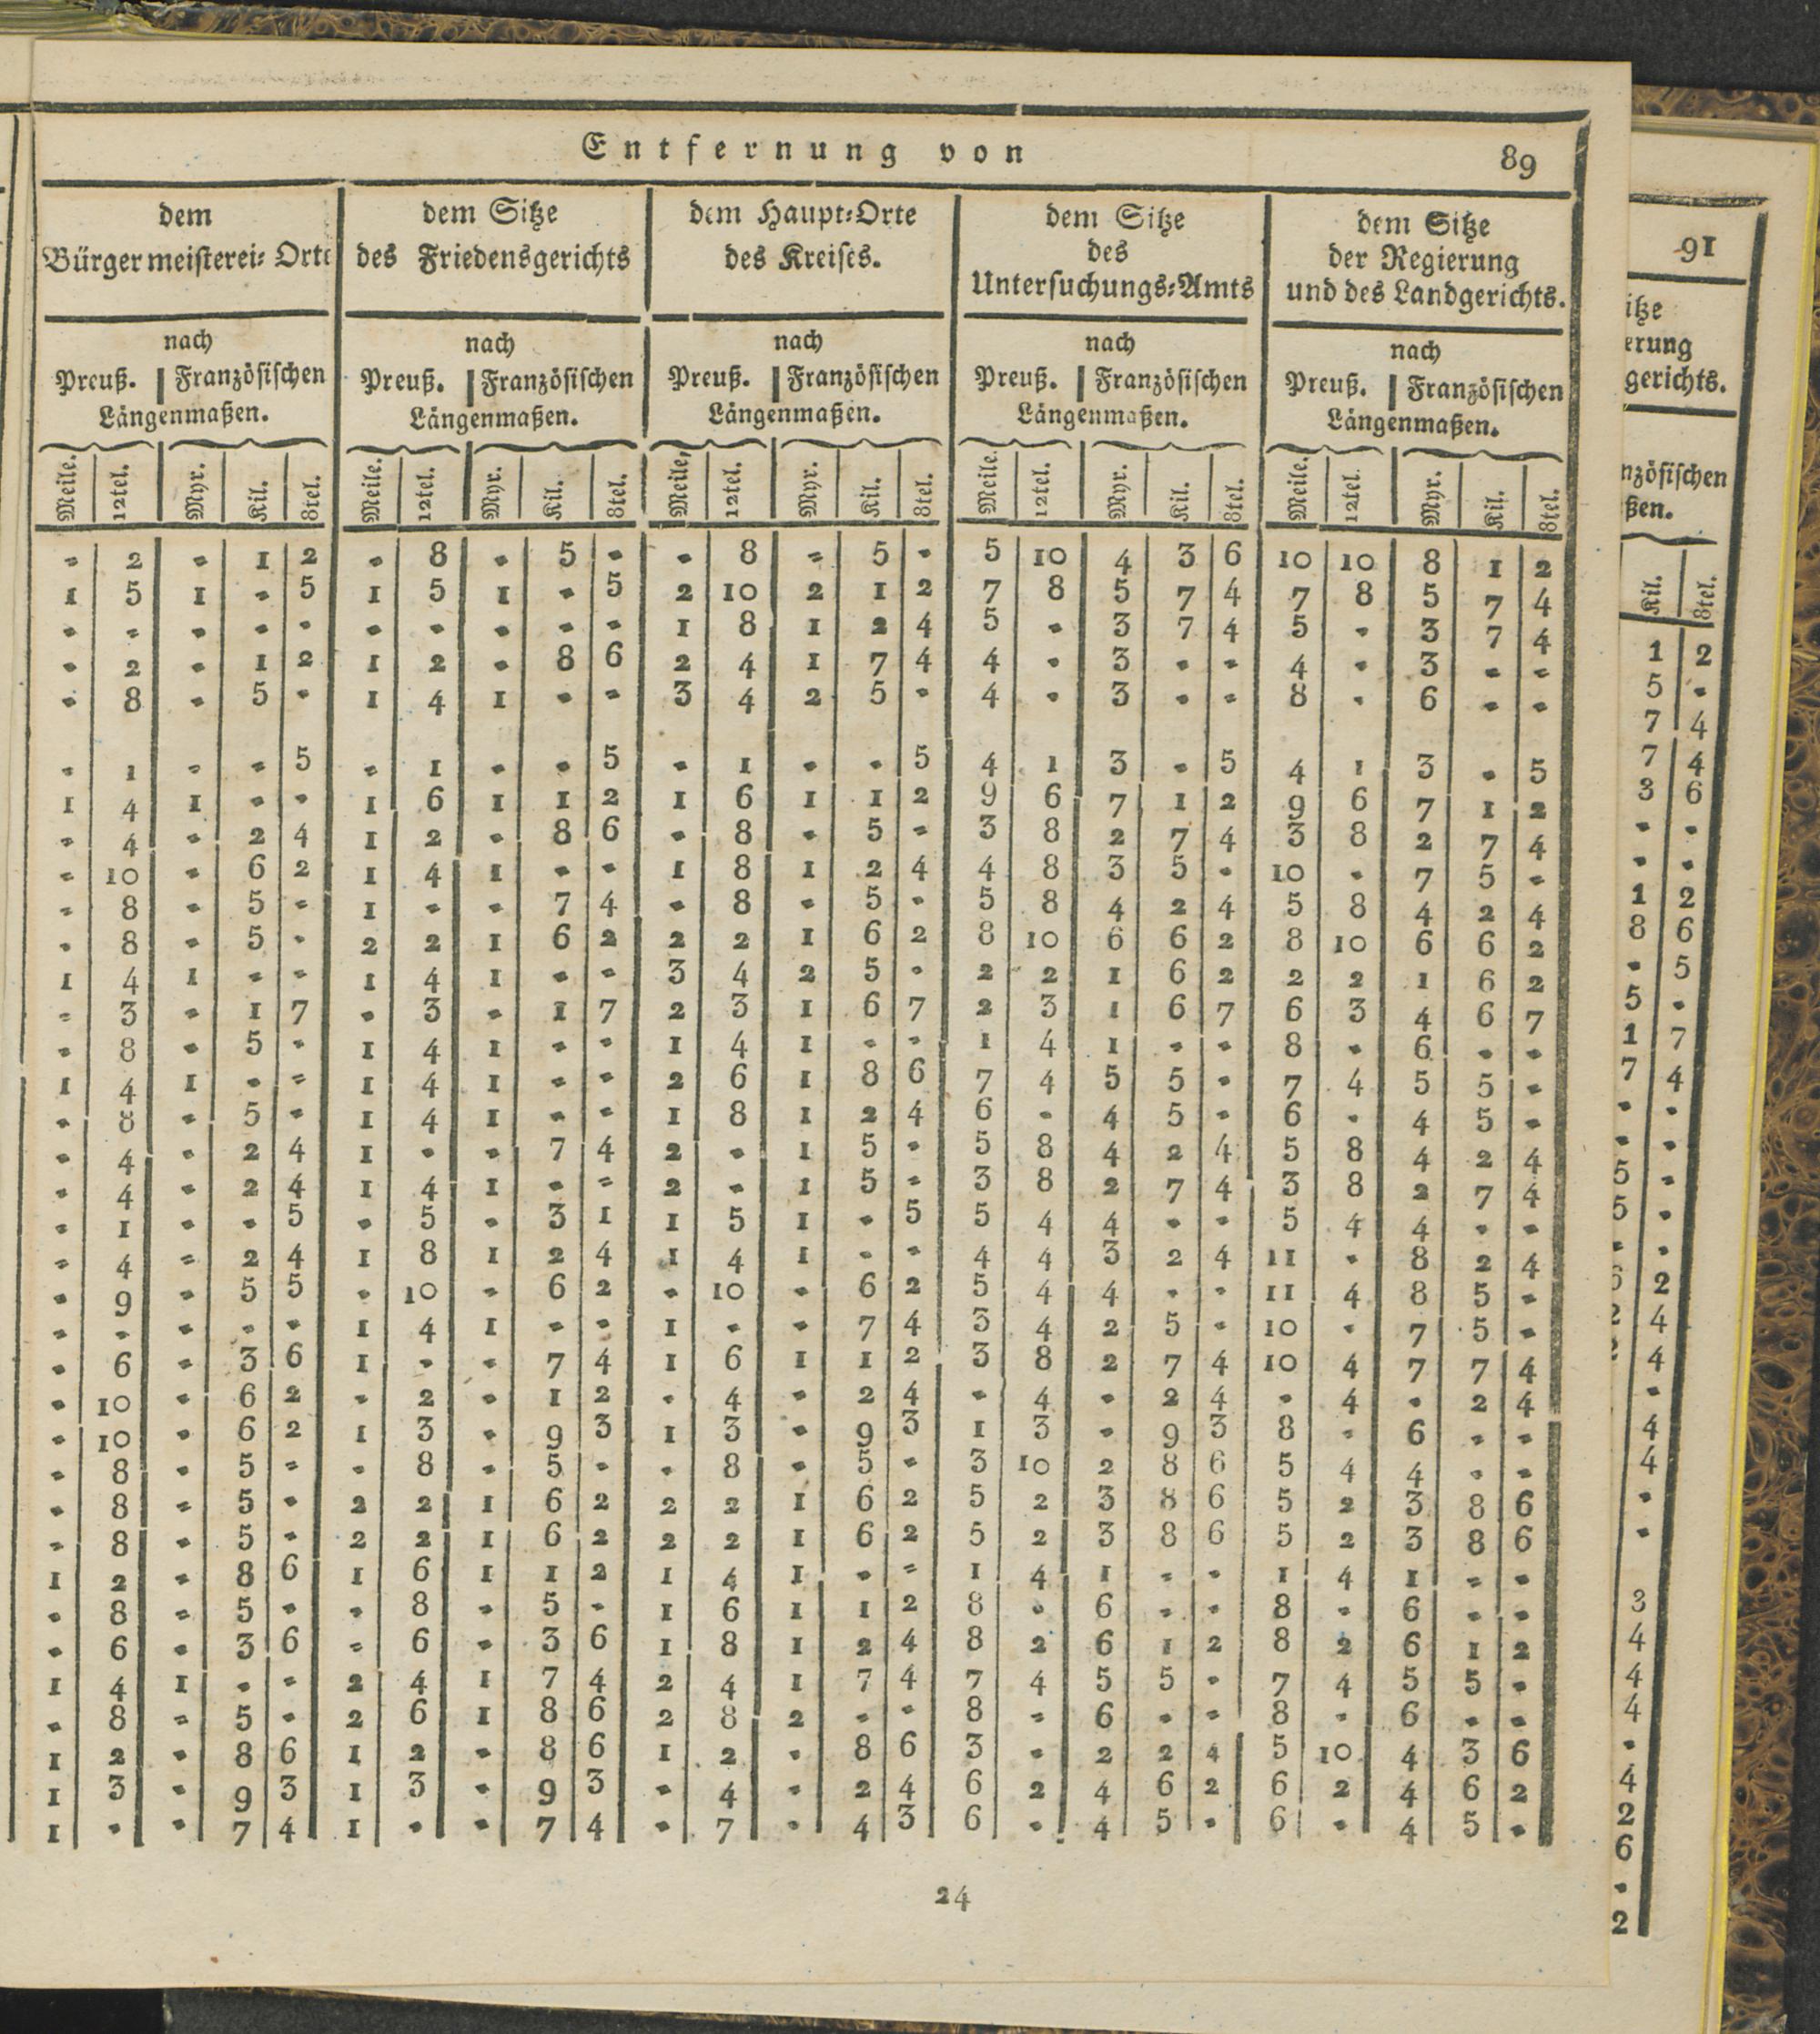 Entfernung von 89
dem dem Sitze dem Haupt=Orte dem Sitze dem Sitze
Bürgermeisterei= Orte des Friedensgerichts des Kreises. des der Regierung
Untersuchungs=Amts und des Landgerichts.
nach nach nach nach nach
Preuß. Französischen Preuß. Französischen Preuß. Französischen Preuß. Französischen Preuß. Französischen
Längenmaßen. Längenmaßen. Längenmaßen. Längenmaßen. Längenmaßen.
Meile. 12tel. Myr. Kil. 8tel. Meile. 12tel. Myr. Kil. 8tel. Meile. 12tel. Myr. Kil. 8tel. Meile. 12tel. Myr. Kil. 8tel. Meile. 12tel. Myr. Kil. 8tel.
= 2 = 1 2 = 8 = 5 = = 8 = 5 = 5 10 4 3 6 10 10 8 1 2
1 5 1 = 5 1 5 1 = 5 2 10 2 1 2 7 8 5 7 4 7 8 5 7 4
= = = = = = = = = = 1 8 1 2 4 5 = 3 7 4 5 = 3 7 4
= 2 = 1 2 1 2 = 8 6 2 4 1 7 4 4 = 3 = = 4 = 3 = =
= 8 = 5 = 1 4 1 = = 3 4 2 5 = 4 = 3 = = 8 = 6 = =
= 1 = = 5 = 1 = = 5 = 1 = = 5 4 1 3 = 5 4 1 3 = 5
1 4 1 = = 1 6 1 1 2 1 6 1 1 2 9 6 7 1 2 9 6 7 1 2
= 4 = 2 4 1 2 = 8 6 = 8 = 5 = 3 8 2 7 4 3 8 2 7 4
= 10 = 6 2 1 4 1 = = 1 8 1 2 4 4 8 3 5 = 10 = 7 5 =
= 8 = 5 = 1 = = 7 4 = 8 = 5 = 5 8 4 2 4 5 8 4 2 4
= 8 = 5 = 2 2 1 6 2 2 2 1 6 2 8 10 6 6 2 8 10 6 6 2
1 4 1 = = 1 4 1 = = 3 4 2 5 = 2 2 1 6 2 2 2 1 6 2
= 3 = 1 7 = 3 = 1 7 2 3 1 6 7 2 3 1 6 7 6 3 4 6 7
= 8 = 5 = 1 4 1 = = 1 4 1 = = 1 4 1 = = 8 = 6 = =
1 4 1 = = 1 4 1 = = 2 6 1 8 6 7 4 5 5 = 7 4 5 5 =
= 8 = 5 = 1 4 1 = = 1 8 1 2 4 6 = 4 5 = 6 = 4 5 =
= 4 = 2 4 1 = = 7 4 2 = 1 5 = 5 8 4 2 4 5 8 4 2 4
= 4 = 2 4 1 4 1 = = 2 = 1 5 = 3 8 2 7 4 3 8 2 7 4
= 1 = = 5 = 5 = 3 1 1 5 1 = 5 5 4 4 = = 5 4 4 = =
= 4 = 2 4 1 8 1 2 4 1 4 1 = = 4 4 3 2 4 11 = 8 2 4
= 9 = 5 5 = 10 = 6 2 = 10 = 6 2 5 4 4 = = 11 4 8 5 =
= = = = = 1 4 1 = = 1 = = 7 4 3 4 2 5 = 10 = 7 5 =
= 6 = 3 6 1 = = 7 4 1 6 1 1 2 3 8 2 7 4 10 4 7 7 4
= 10 = 6 2 = 2 = 1 2 = 4 = 2 4 = 4 = 2 4 = 4 = 2 4
= 10 = 6 2 1 3 = 9 3 1 3 = 9 3 1 3 = 9 3 8 = 6 = =
= 8 = 5 = = 8 = 5 = = 8 = 5 = 3 10 2 8 6 5 4 4 = =
= 8 = 5 = 2 2 1 6 2 2 2 1 6 2 5 2 3 8 6 5 2 3 8 6
= 8 = 5 = 2 2 1 6 2 2 2 1 6 2 5 2 3 8 6 5 2 3 8 6
1 2 = 8 6 1 6 1 1 2 1 4 1 = = 1 4 1 = = 1 4 1 = =
= 8 = 5 = = 8 = 5 = 1 6 1 1 2 8 = 6 = = 8 = 6 = =
= 6 = 3 6 = 6 = 3 6 1 8 1 2 4 8 2 6 1 2 8 2 6 1 2
1 4 1 = = 2 4 1 7 4 2 4 1 7 4 7 4 5 5 = 7 4 5 5 =
= 8 = 5 = 2 6 1 8 6 2 8 2 = = 8 = 6 = = 8 = 6 = =
1 2 = 8 6 1 2 = 8 6 1 2 = 8 6 3 = 2 2 4 5 10 4 3 6
1 3 = 9 3 1 3 = 9 3 = 4 = 2 4 6 2 4 6 2 6 2 4 6 2
1 = = 7 4 1 = = 7 4 = 7 = 4 3 6 = 4 5 = 6 = 4 5 =
24
91
itze
erung
gerichts.
nzösischen
ßen.
Kil. 8tel.
1 2
5 =
7 4
7 4
3 6
= =
= =
1 2
8 6
= 5
5 =
1 7
7 4
= =
= =
5 =
5 =
= =
6 2
2 4
2 4
=
4
4
=
=
3
4
4
4
=
4
2
6
=
2